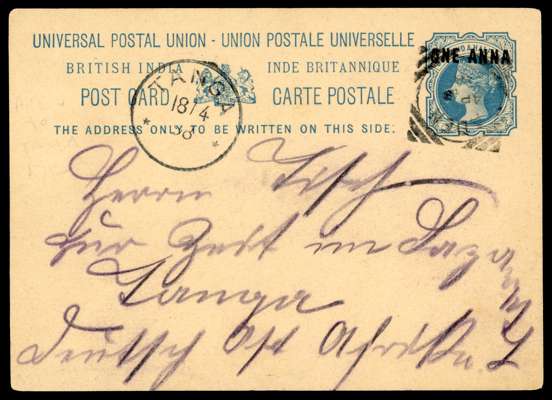 UNIVERSAL POSTAL UNION - UNION POSTALE UNIVERSELLE
BRITISH INDIA INDE BRITANNIQUE
POST CARD CARTE POSTALE
THE ADDRESS ONLY TO BE WRITTEN ON THIS SIDE.
ONE ANNA
TANGA
18/4
Herrn Tisch
zur Zeit im Lazareth
Tanga
Deutsch Ost Afrika